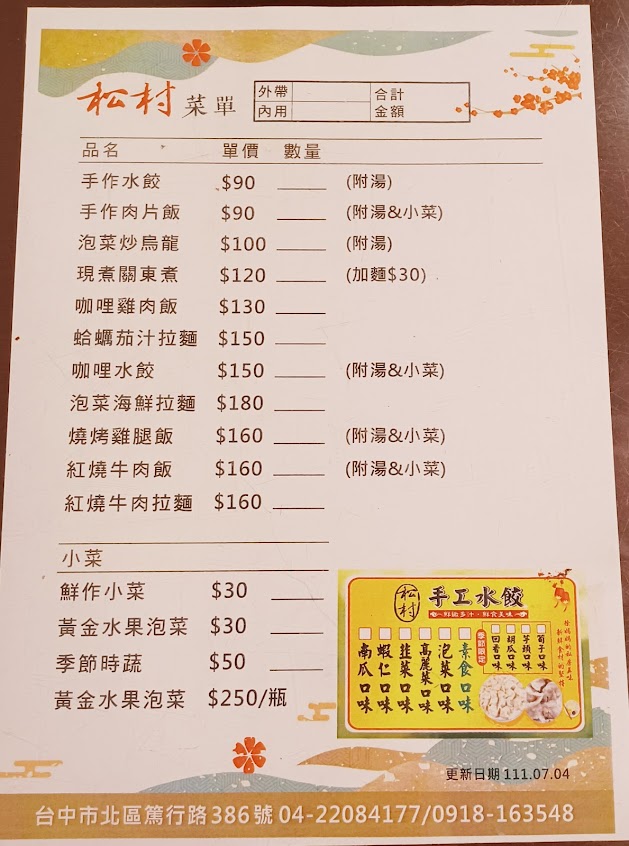 松村 菜單
外帶 合計
內用 金額
品名 單價 數量
手作水餃 $90 (附湯)
手作肉片飯 $90 (附湯&小菜)
泡菜炒烏龍 $100 (附湯)
現煮關東煮 $120 (加麵$30)
咖哩雞肉飯 $130
蛤蠣茄汁拉麵 $150
咖哩水餃 $150 (附湯&小菜)
泡菜海鮮拉麵 $180
燒烤雞腿飯 $160 (附湯&小菜)
紅燒牛肉飯 $160 (附湯&小菜)
紅燒牛肉拉麵 $160
小菜
鮮作小菜 $30
黃金水果泡菜 $30
季節時蔬 $50
黃金水果泡菜 $250/瓶
松村 手工水餃
鮮嫩多汁·鮮食美味
南瓜口味
蝦仁口味
韭菜口味
高麗菜口味
泡菜口味
素食口味
季節限定
回香口味
胡瓜口味
芋頭口味
筍子口味
更新日期 111.07.04
台中市北區篤行路386號 04-22084177/0918-163548